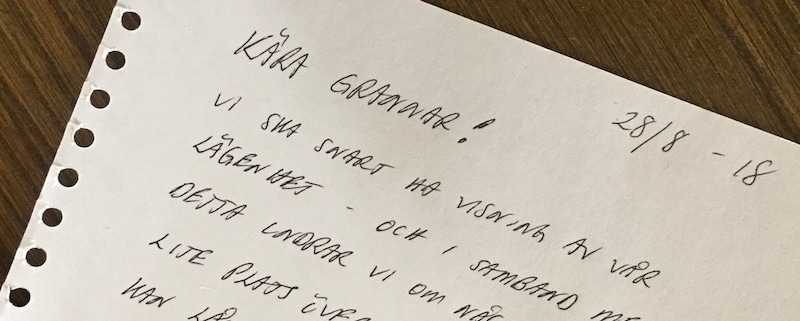 KÄRA GRANNAR!
28/8 - 18
VI SKA SNART HA VISNING AV VÅR
LÄGENHET - OCH I SAMBAND
DETTA UNDRAR VI OM
LITE PLATS
KAN